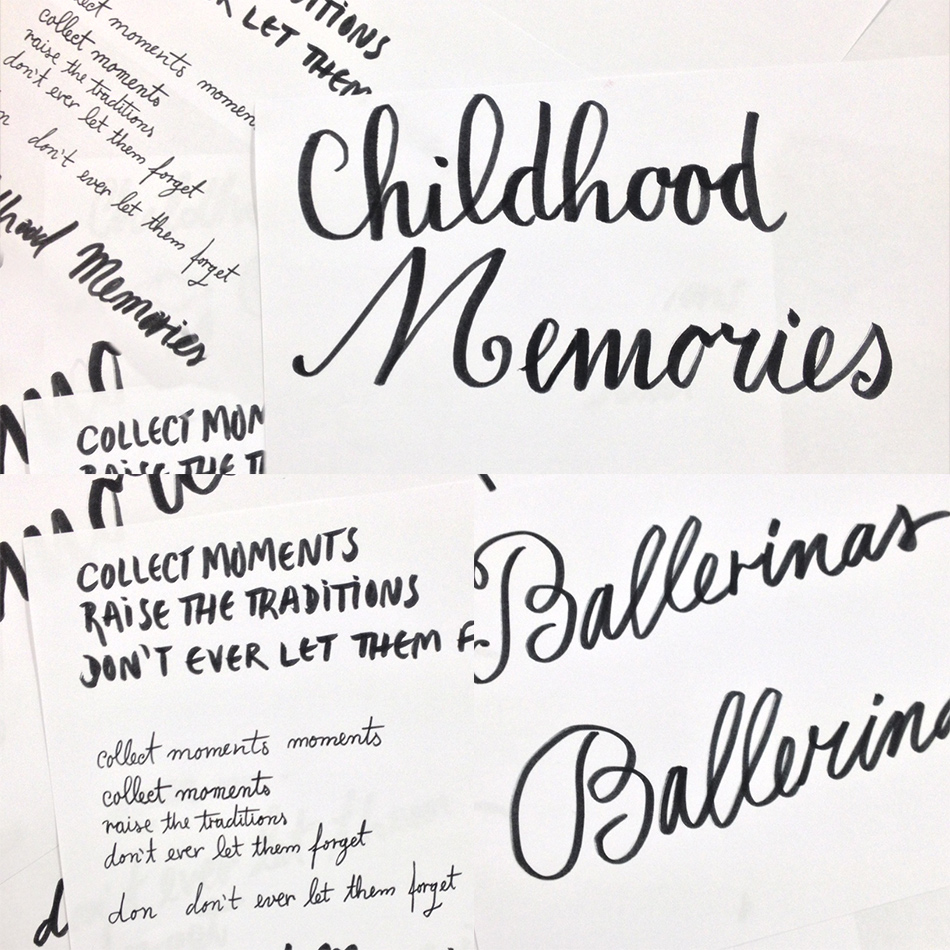 DITIONS
LET THEM
collect moments momen
collect moments
raise the traditions
don't ever let them forget
don't ever let them forget
hood Memories
COLLECT MOM
RAISE THE T
Childhood
Memories
COLLECT MOMENTS
RAISE THE TRADITIONS
DON'T EVER LET THEM F
collect moments moments
collect moments
raise the traditions
don't ever let them forget
don don't ever let them forget
Ballerinas
Ballerina